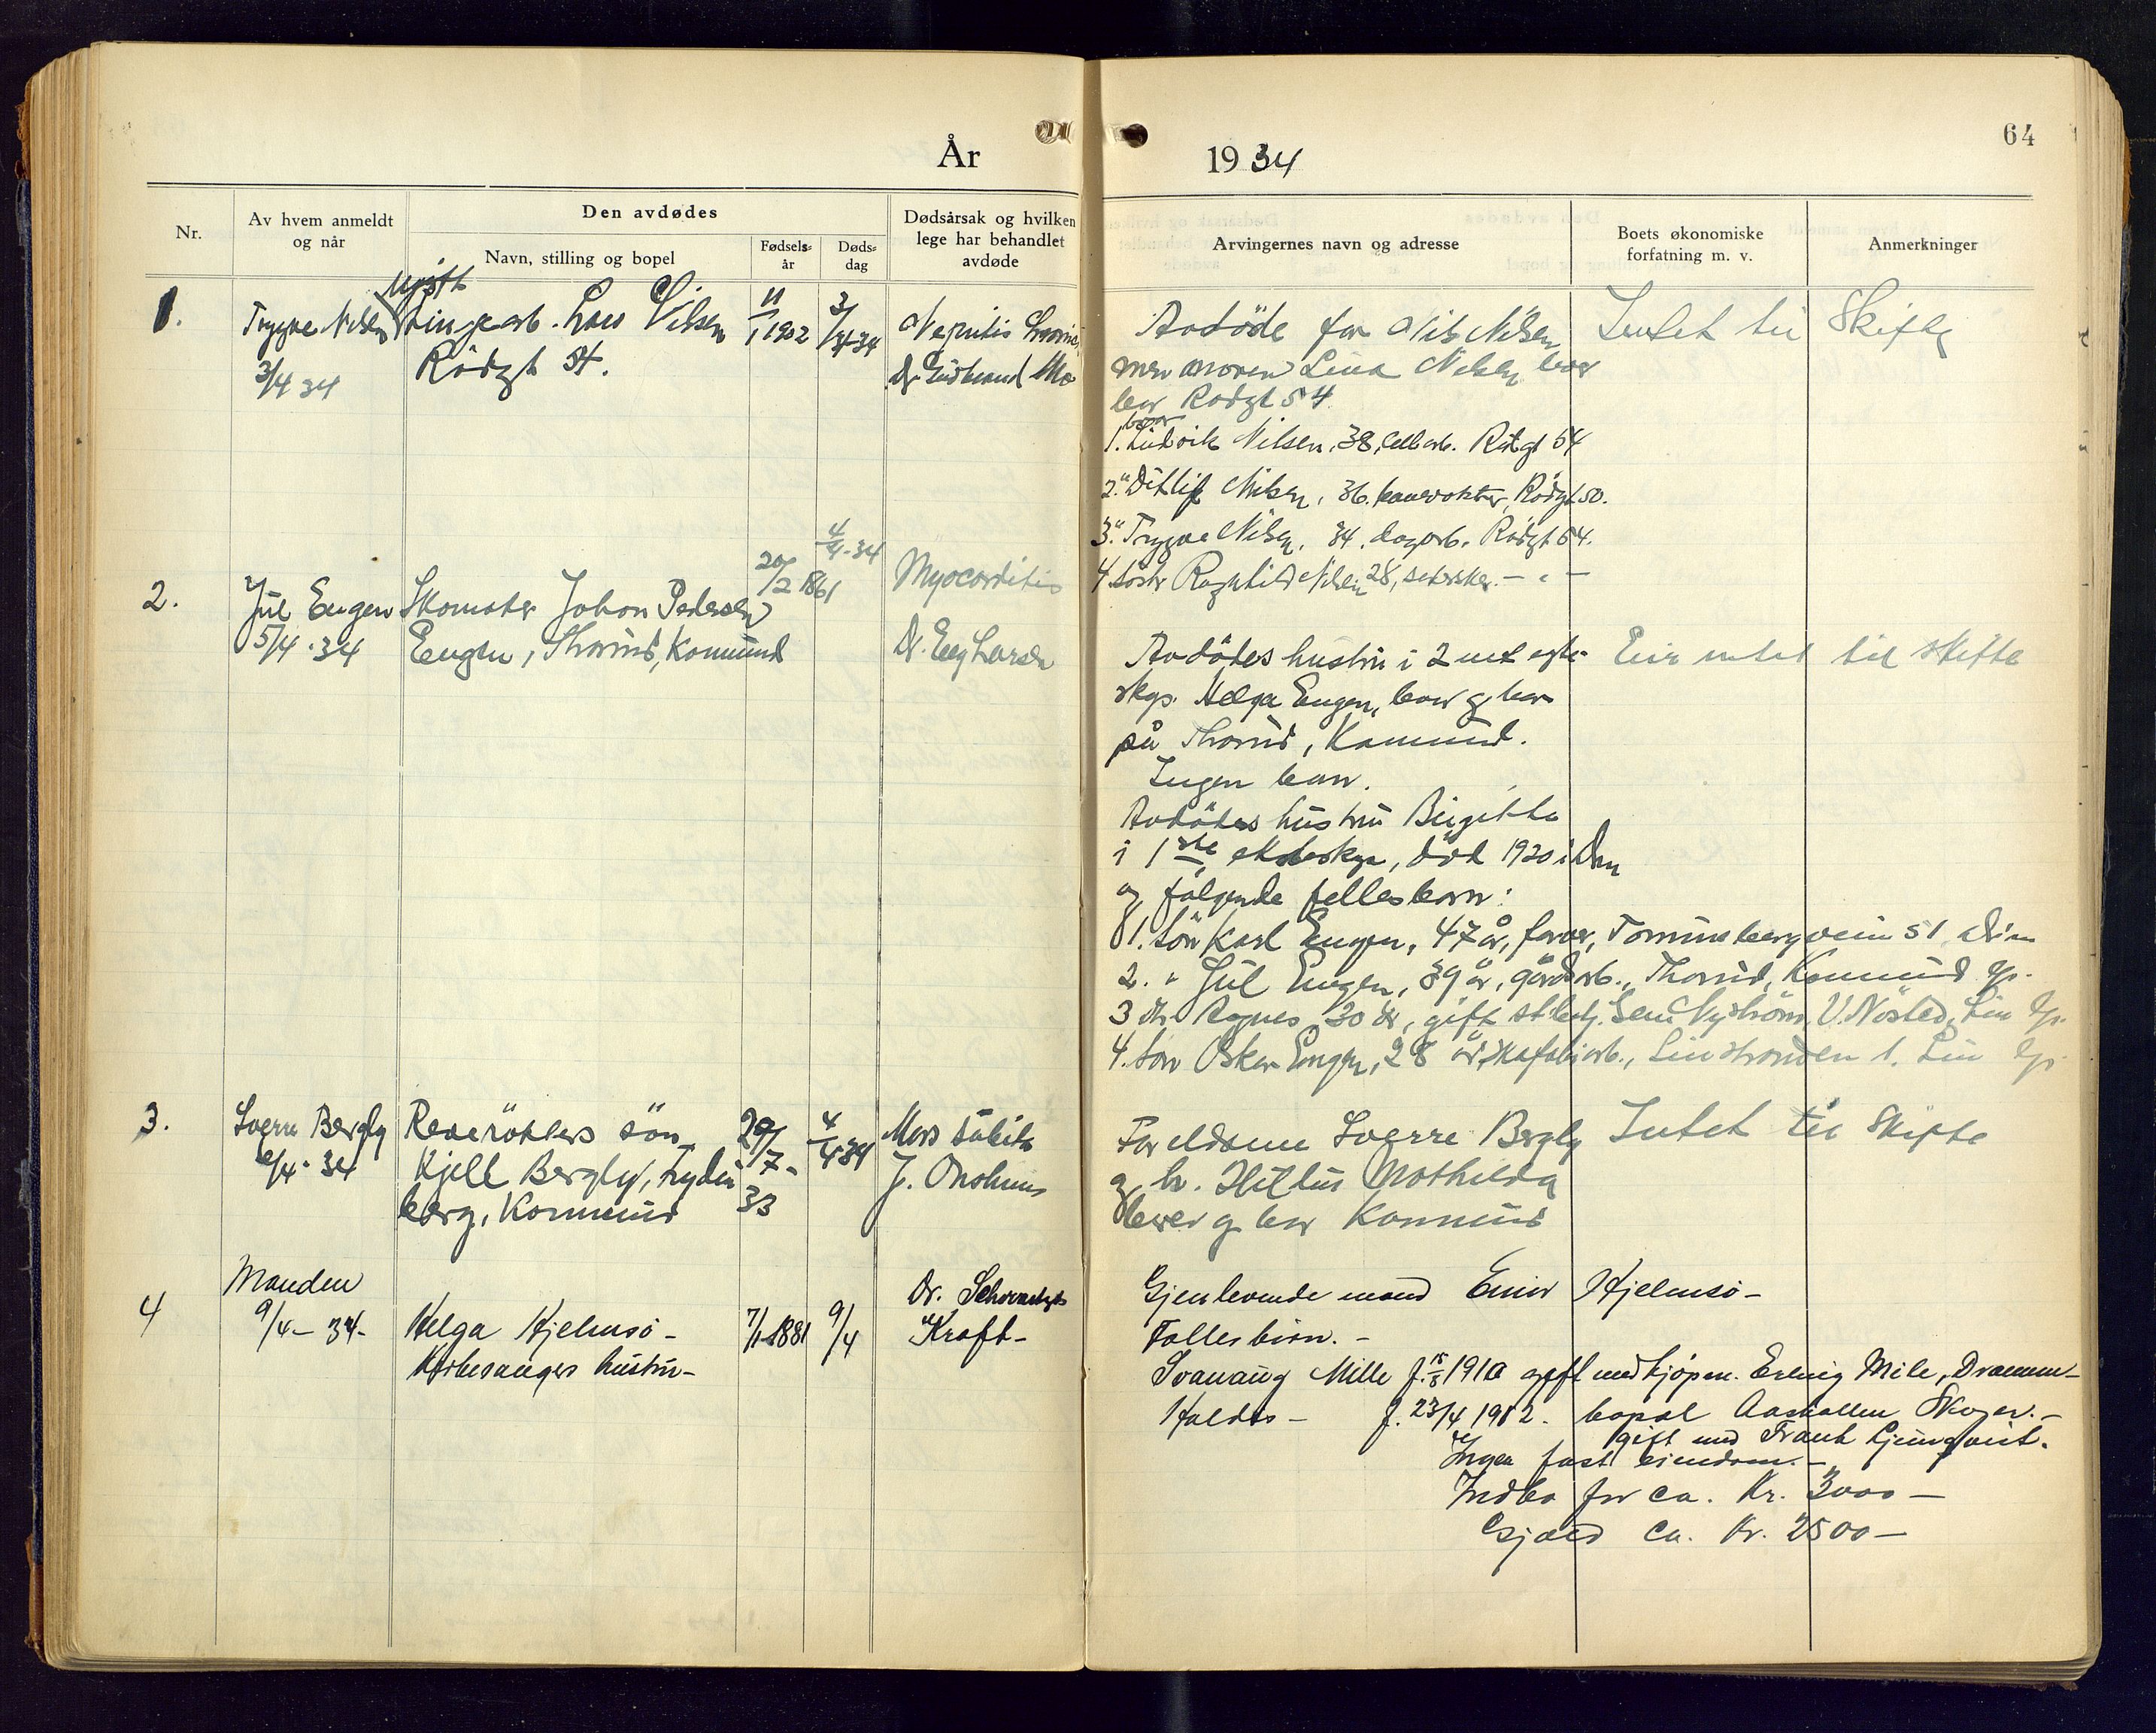 År 1934
64
Nr.
Av hvem anmeldt og når
Den avdødes
Navn, stilling og bopel
Fødsels-år
Døds-dag
Dødsårsak og hvilken lege har behandlet avdøde
Arvingernes navn og adresse
Boets økonomiske forfatning m. v.
Anmerkninger
1.
Trygve Nilsen
3/4 34
ugift
Lars Nilsen
Rødgt 54.
11/1 1902
3/4 34
Nefritis
Dr. Gudbrand Mo
Avdöde far Nils Nilsen
men moren Lina Nilsen lever
bor Rødgt 54.
bror
1. Ludvik Nilsen, 38, cellarb. Rødgt 54
2. " Ditlif Nilsen, 36. banevokter, Rødgt 50.
3. " Trygve Nilsen, 34. dagarb. Rødgt 54.
4. søster Ragnhild Nilsen 28, - " -
Intet til Skifte
2.
Jul Eugen
5/4. 34
Skomaker Johan Pedersen
Eugen, Thorrud, Konnerud
20/2 1861
4/4-34
Myocarditis
Dr. Eeg Larsen
Avdödes hustru i 2net egte-
skap. Helga Eugen, lever og bor
på Thorrud, Konnerud.
Ingen barn.
Avdödes hustru Birgitte
i 1ste ekteskap, död 1920 i Drn
og følgende fellesbarn:
1. Sön Karl Eugen, 47 år, farver, 51 Drm
2. " Jul Eugen, 39 år, gårdarb., Thorrud, Konnerud
3 dtr Agnes 30 år, gift Nyström, V. Nøsted, Lier
4. Sön Oskar Eugen, 28 år, Linstranden 1. Lier
Eier intet til skifte
3.
Sverre Bergly
6/4. 34
Reverökters sön
Kjell Bergly,
berg, Konnerud
29/7-33
4/4 34
Mors subita
J. Onshuus
Foreldrene Sverre Bergly
og h. Hustru Mathilda
lever og bor Konnerud
Intet til Skifte
4
Manden
9/4-34-
Helga Hjelmsö-
Kirkesangers hustru-
7/1-1881
9/4
Dr.
Kraft-
Gjenlevende mand Einar Hjelmsö-
Fælles börn.-
Svanaug Mille f. 15/8 1910 gift med kjöpm. Erling Mile, Drammen-
Haldis- f. 23/4 1912. bopæl Aaskollen Skoger.-
gift med Frank Ljungqvist.
Ingen fast eiendom.-
Indbo for ca. Kr. 3000-
Gjæld ca. Kr. 2500-